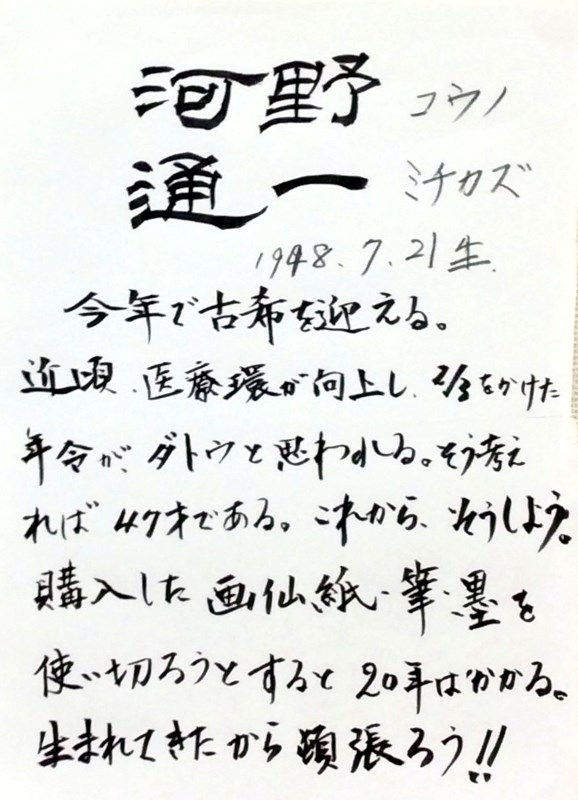 河野 コウノ
通一 ミチカズ
1948.7.21生.
今年で古希を迎える。
近頃、医療環が向上し、2/3をかけた
年令が、ダトウと思われる。そう考え
れば47才である。これから、そうしよう。
購入した画仙紙・筆・墨を
使い切ろうとすると20年はかかる。
生まれてきたから頑張ろう!!